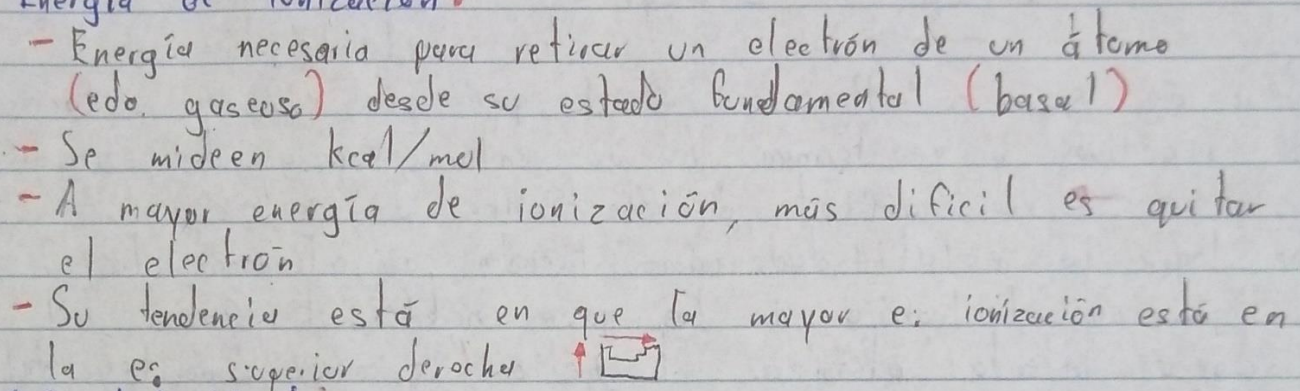 Energía de ionización.
- Energía necesaria para retirar un electrón de un átomo
(edo. gaseoso) desde su estado fundamental (basal)
- Se mideen kcal/mol
- A mayor energía de ionización, más dificil es quitar
el electrón
- Su tendencia está en que la mayor e. ionización está en
la es superior derecha